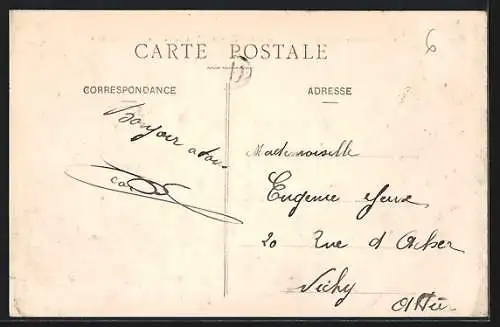 6
CARTE POSTALE
CORRESPONDANCE
ADRESSE
Bonjour
Mademoiselle
Eugenie
20 Rue d'
Vichy
Allier